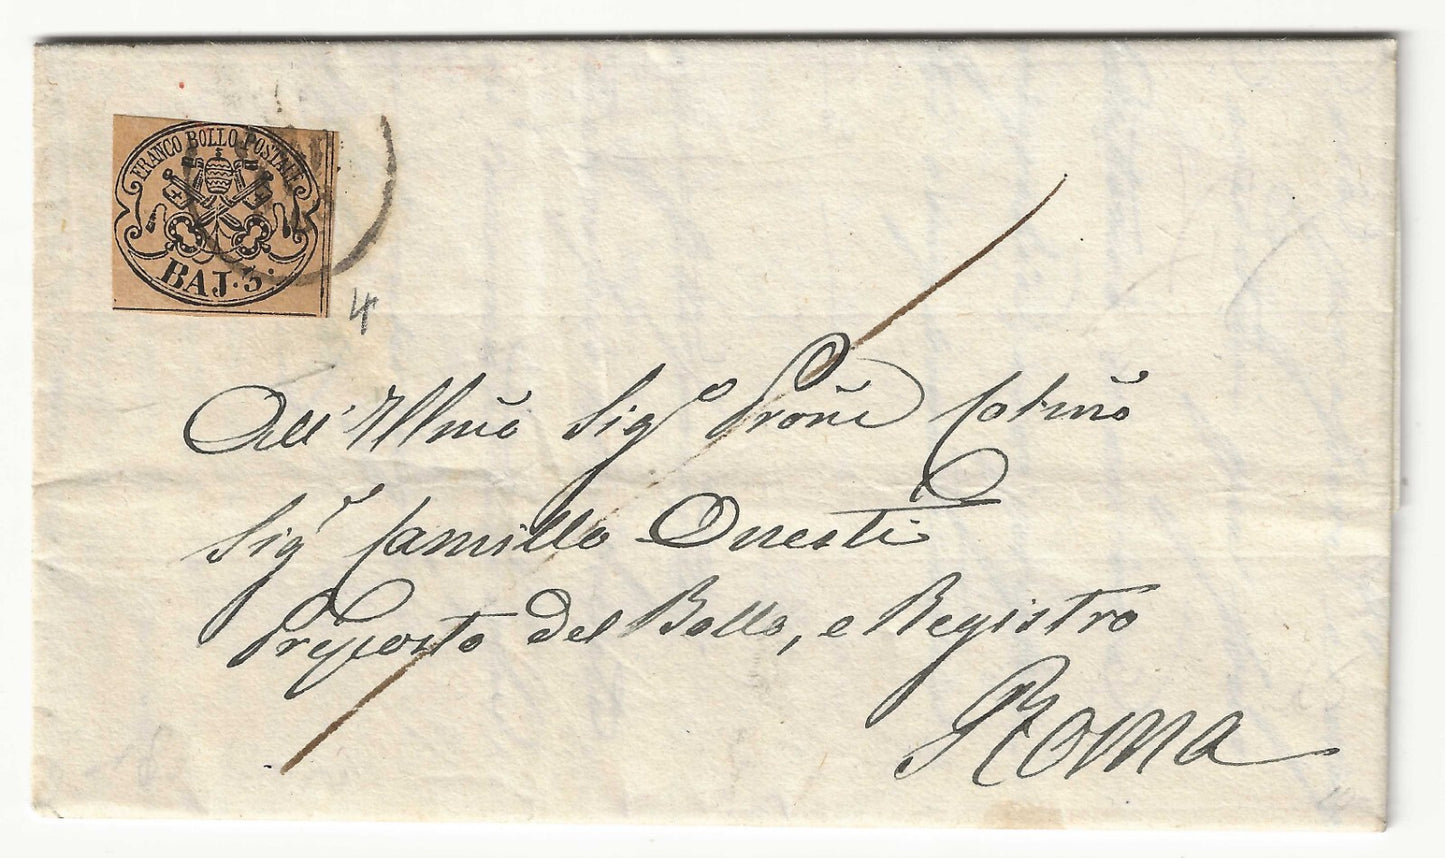 FRANCO BOLLO POSTALE
BAJ. 3.
4
All' Illmõ Sigr Prõne Colmõ
Sigr Camillo Onesti
Preposto del Bollo, e Registro
Roma